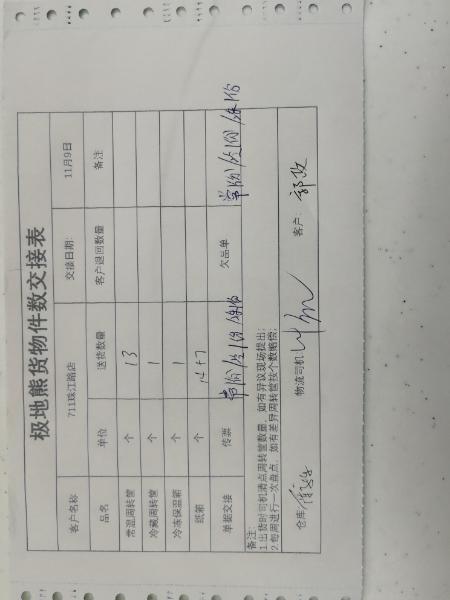 极地熊货物件数交接表
客户名称 711珠江路店 交接日期: 11月9日
品名 单位 送货数量 客户退回数量 备注
常温周转筐 个 13
冷藏周转筐 个 1
冷冻保温箱 个 1
纸箱 个
单据交接 传票 欠品单
备注:
1.出货时司机清点周转筐数量,如有异议现场提出;
2.每周进行一次盘点,如有差异周转筐按个数赔偿;
仓库: 物流司机: 客户: